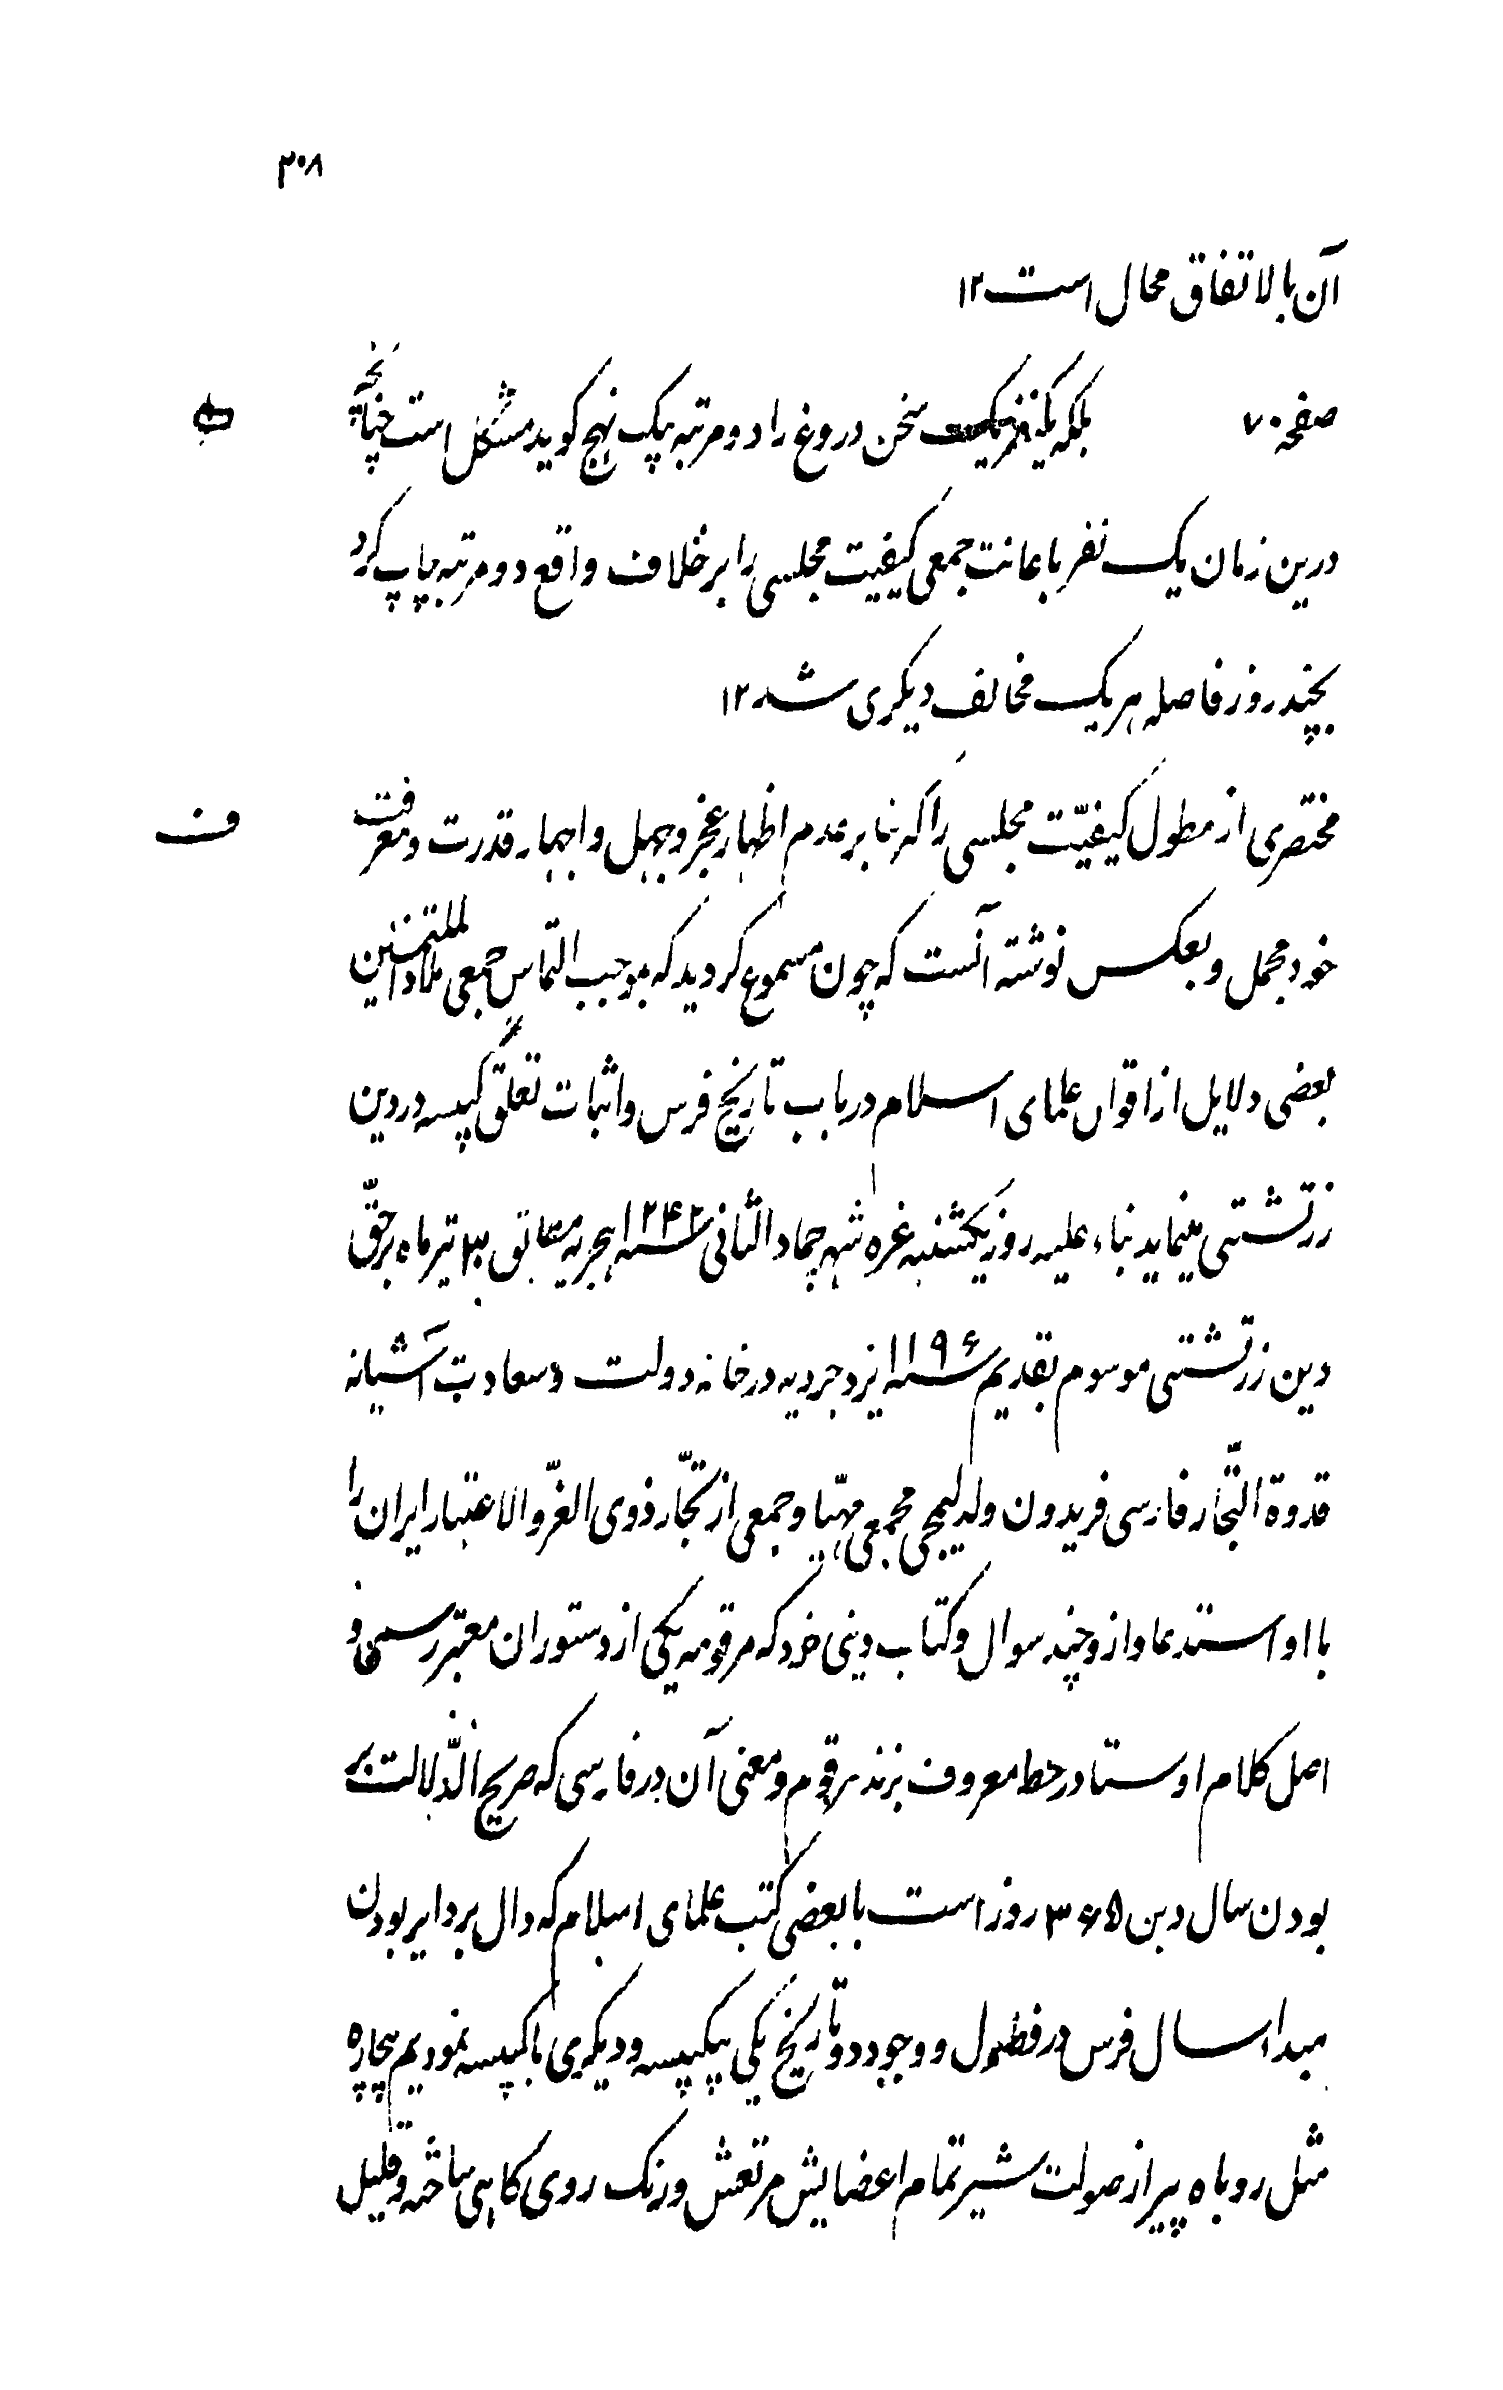 ۳۰۸
آن بالاتفاق محال است ۱۲
صفحه ۷۰ بلکه یکنفر یک سخن دروغ را دو مرتبه بیک نهج کوید مشکل است چنانچه
درین زمان یک نفر باعانت جمعی کیفیت مجلسی را برخلاف واقع دو مرتبه چاپ کرد
بچند روز فاصله هر یک مخالف دیکری شد ۱۲
ف
مختصری از مطول کیفیّت مجلسی را که بنا بر عدم اظهار عجز و جهل و اجهار قدرت و معرفت
خود مجمل و بعکس نوشته آنست که چون مسموع کردید که بموجب التماس جمعی ملا
بعضی دلایل از اقوال علمای اسلام در باب تاریخ فرس و اثبات تعلّق کبیسه در دین
زرتشتی مینماید بناء علیه روز یکشنبه غره شهر جماد الثانی سنه ۱۲۴۲ هجریه مطابق تیر ماه برحقّ
دین زرتشتی موسوم بقدیم سنه ۱۱۹۶ یزدجردیه در خانه دولت و سعادت آشیانه
قدوة التّجار فارسی فریدون ولد لیمجی مجمعی مهیّا و جمعی از تجّار ذوی العزّ و الاعتبار ایران را
با او استدعا و از و چند سوال و کتاب دینی خود که مرقومه یکی از دستوران معتبر رسمی و
اصل کلام اوستا در خط معروف بزند مرقوم و معنی آن در فارسی که صریح الدّلالت بر
بودن سال دین ۳۶۵ روز است با بعضی کتب علمای اسلام که دال بر دایر بودن
مبدا سال فرس در فصول و وجود دو تاریخ یکی بیکبیسه و دیکری با کبیسه نمودیم بیچاره
مثل روباه پیر از صولت شیر تمام اعضایش مرتعش و رنک روی کاهی ساخته و قلیل